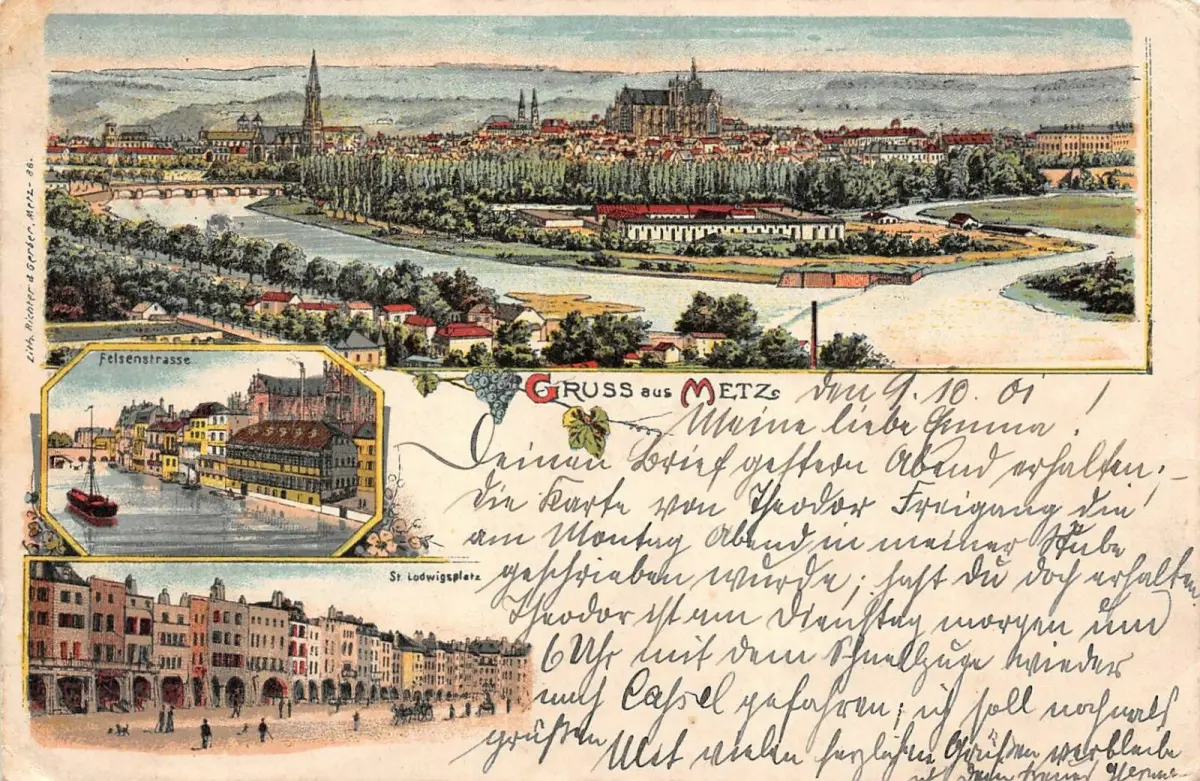 Lith. Richter & Gerder, Metz - 86.
Felsenstrasse
St. Ludwigsplatz
GRUSS aus METZ.
den 9. 10. 01 !
Meine liebe Emma!
Deinen Brief gestern Abend erhalten; -
die Karte von Theodor Freigang die
am Montag Abend in meiner Stube
geschrieben wurde; hast du doch erhalten
Theodor ist am Dienstag morgen um
6 Uhr mit dem Schnellzuge wieder
nach Cassel gefahren; ich soll nochmals
grüßen Mit vielen herzlichen Grüßen verbleibe
ich dein treuer